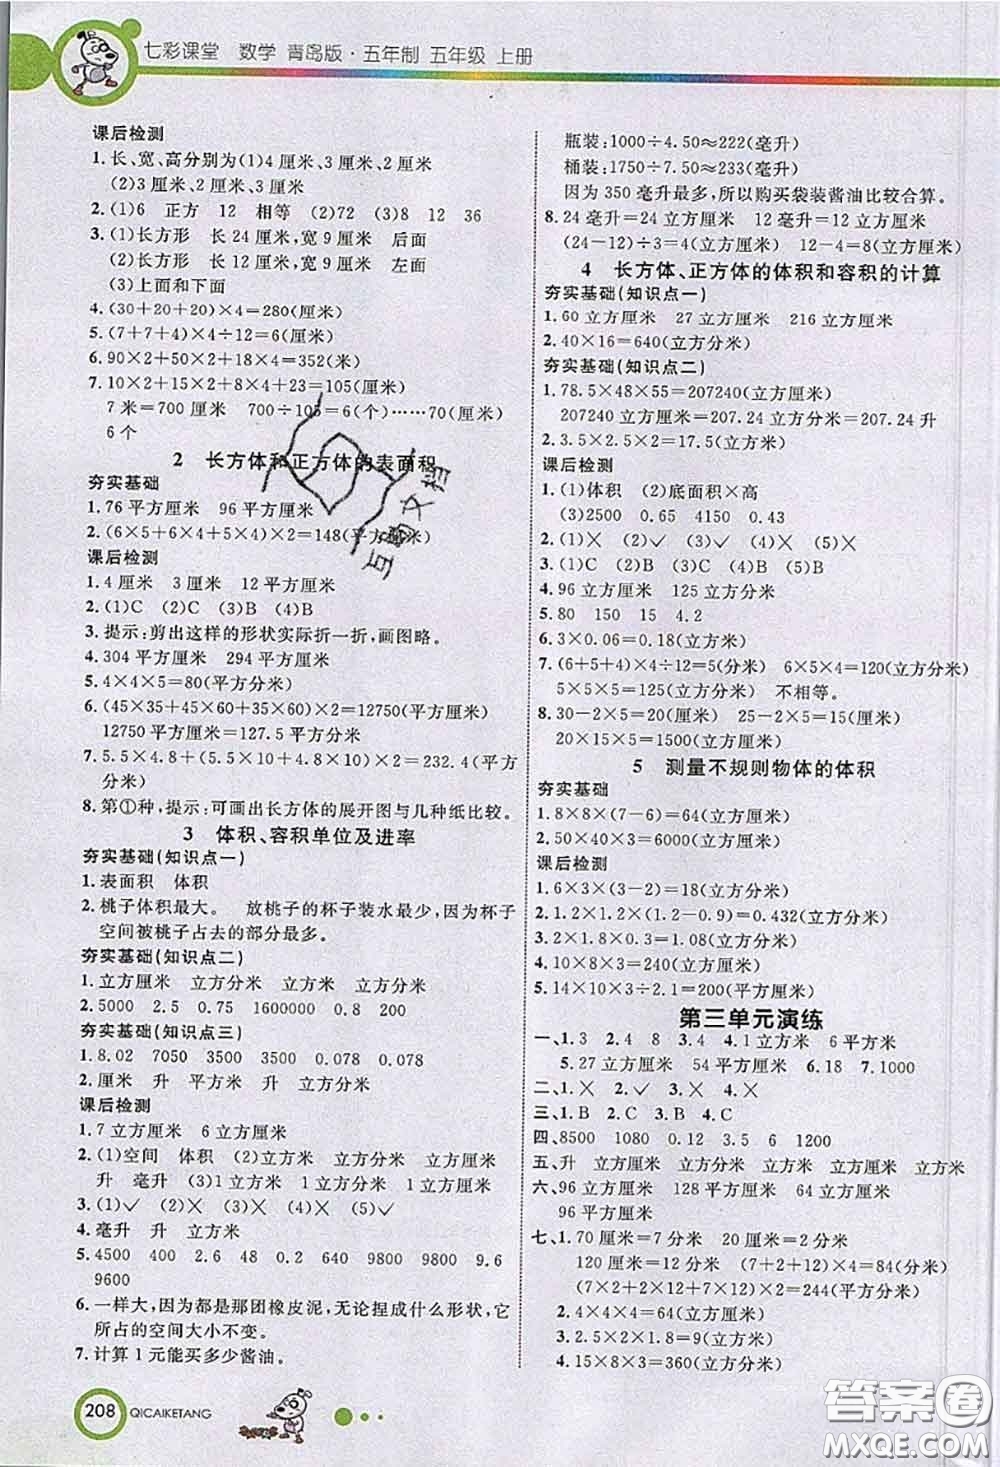 七彩课堂 数学 青岛版·五年制 五年级 上册
课后检测
1.长、宽、高分别为(1)4厘米、3厘米、2厘米
(2)3厘米、2厘米、3厘米
2.(1)6 正方 12 相等 (2)72 (3)8 12 36
3.(1)长方形 长24厘米,宽9厘米 后面
(2)长方形 长30厘米,宽9厘米 左面
(3)上面和下面
4.(30+20+20)×4=280(厘米)
5.(7+7+4)×4÷12=6(厘米)
6.90×2+50×2+18×4=352(米)
7.10×2+15×2+8×4+23=105(厘米)
7米=700厘米 700÷105=6(个)……70(厘米)
6个
2 长方体和正方体的表面积
夯实基础
1.76平方厘米 96平方厘米
2.(6×5+6×4+5×4)×2=148(平方厘米)
课后检测
1.4厘米 3厘米 12平方厘米
2.(1)C (2)C (3)B (4)B
3.提示:剪出这样的形状实际折一折,画图略。
4.304平方厘米 294平方厘米
5.4×4×5=80(平方分米)
6.(45×35+45×60+35×60)×2=12750(平方厘米)
12750平方厘米=127.5平方分米
7.5.5×4.8+(5.5×10+4.8×10)×2=232.4(平方厘米)
8.第①种,提示:可画出长方体的展开图与几种纸比较。
3 体积、容积单位及进率
夯实基础(知识点一)
1.表面积 体积
2.桃子体积最大。 放桃子的杯子装水最少,因为杯子
空间被桃子占去的部分最多。
夯实基础(知识点二)
1.立方厘米 立方分米 立方分米 立方米
2.5000 2.5 0.75 1600000 0.8
夯实基础(知识点三)
1.8.02 7050 3500 3500 0.078 0.078
2.厘米 升 平方米 升 立方分米
课后检测
1.7立方厘米 6立方厘米
2.(1)空间 体积 (2)立方米 立方分米 立方厘米
升 毫升 (3)1立方米 1立方分米 1立方厘米
3.(1)✓ (2)× (3)× (4)✓ (5)✓
4.毫升 升 立方米
5.4500 400 2.6 48 0.2 640 9800 9800 9.6
9600
6.一样大,因为都是那团橡皮泥,无论捏成什么形状,它
所占的空间大小不变。
7.计算1元能买多少酱油。
208 QICAIKETANG
瓶装:1000÷4.50≈222(毫升)
桶装:1750÷7.50≈233(毫升)
因为350毫升最多,所以购买袋装酱油比较合算。
8.24毫升=24立方厘米 12毫升=12立方厘米
(24-12)÷3=4(立方厘米) 12-4=8(立方厘米)
4 长方体、正方体的体积和容积的计算
夯实基础(知识点一)
1.60立方厘米 27立方厘米 216立方厘米
2.40×16=640(立方分米)
夯实基础(知识点二)
1.78.5×48×55=207240(立方厘米)
207240立方厘米=207.24立方分米=207.24升
2.3.5×2.5×2=17.5(立方米)
课后检测
1.(1)体积 (2)底面积×高
(3)2500 0.65 4150 0.43
2.(1)× (2)✓ (3)✓ (4)× (5)×
3.(1)C (2)C (3)C (4)B (5)B
4.96立方分米 125立方厘米
5.80 150 15 4.2
6.3×0.06=0.18(立方米)
7.(6+5+4)×4÷12=5(分米) 6×5×4=120(立方分米)
5×5×5=125(立方分米) 不相等。
8.30-2×5=20(厘米) 25-2×5=15(厘米)
20×15×5=1500(立方厘米)
5 测量不规则物体的体积
夯实基础
1.8×8×(7-6)=64(立方厘米)
2.50×40×3=6000(立方厘米)
课后检测
1.6×3×(3-2)=18(立方分米)
2.1.2×1.2×(1.2-0.9)=0.432(立方分米)
3.2×1.8×0.3=1.08(立方分米)
4.10×8×3=240(立方分米)
5.14×10×3÷2.1=200(平方厘米)
第三单元演练
一、1.3 2.4 8 3.4 4.1立方分米 6平方分米
5.27立方厘米 54平方厘米 6.18 7.1000
二、1.× 2.✓ 3.✓ 4.×
三、1.B 2.C 3.B 4.C
四、8500 1080 0.12 3.5 6 1200
五、升 立方厘米 立方分米 立方米 立方分米 立方米
六、96立方厘米 128平方厘米 64立方厘米
96平方厘米
七、1.70厘米=7分米 20厘米=2分米
120厘米=12分米 (7+2+12)×4=84(分米)
(7×2+2×12+7×12)×2=244(平方分米)
2.4×4×4=64(立方厘米)
3.2.5×2×1.8=9(立方米)
4.15×8×3=360(立方分米)
互动文档
答案圈
MXQE.COM